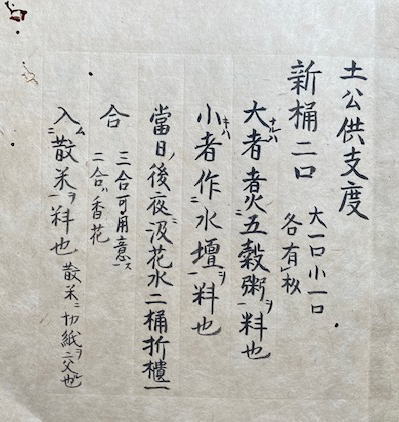 土公供支度
新桶二口
大一口小一口
各有
大者ナルハ煮五穀粥ヲ料也
小者キハ作水壇ヲ料也
當日ノ後夜ニ汲花水二桶折櫃一
合
三合可用意ス
二合ハ香花
入ム散米ヲ料也
散米ニ切紙ヲ交也